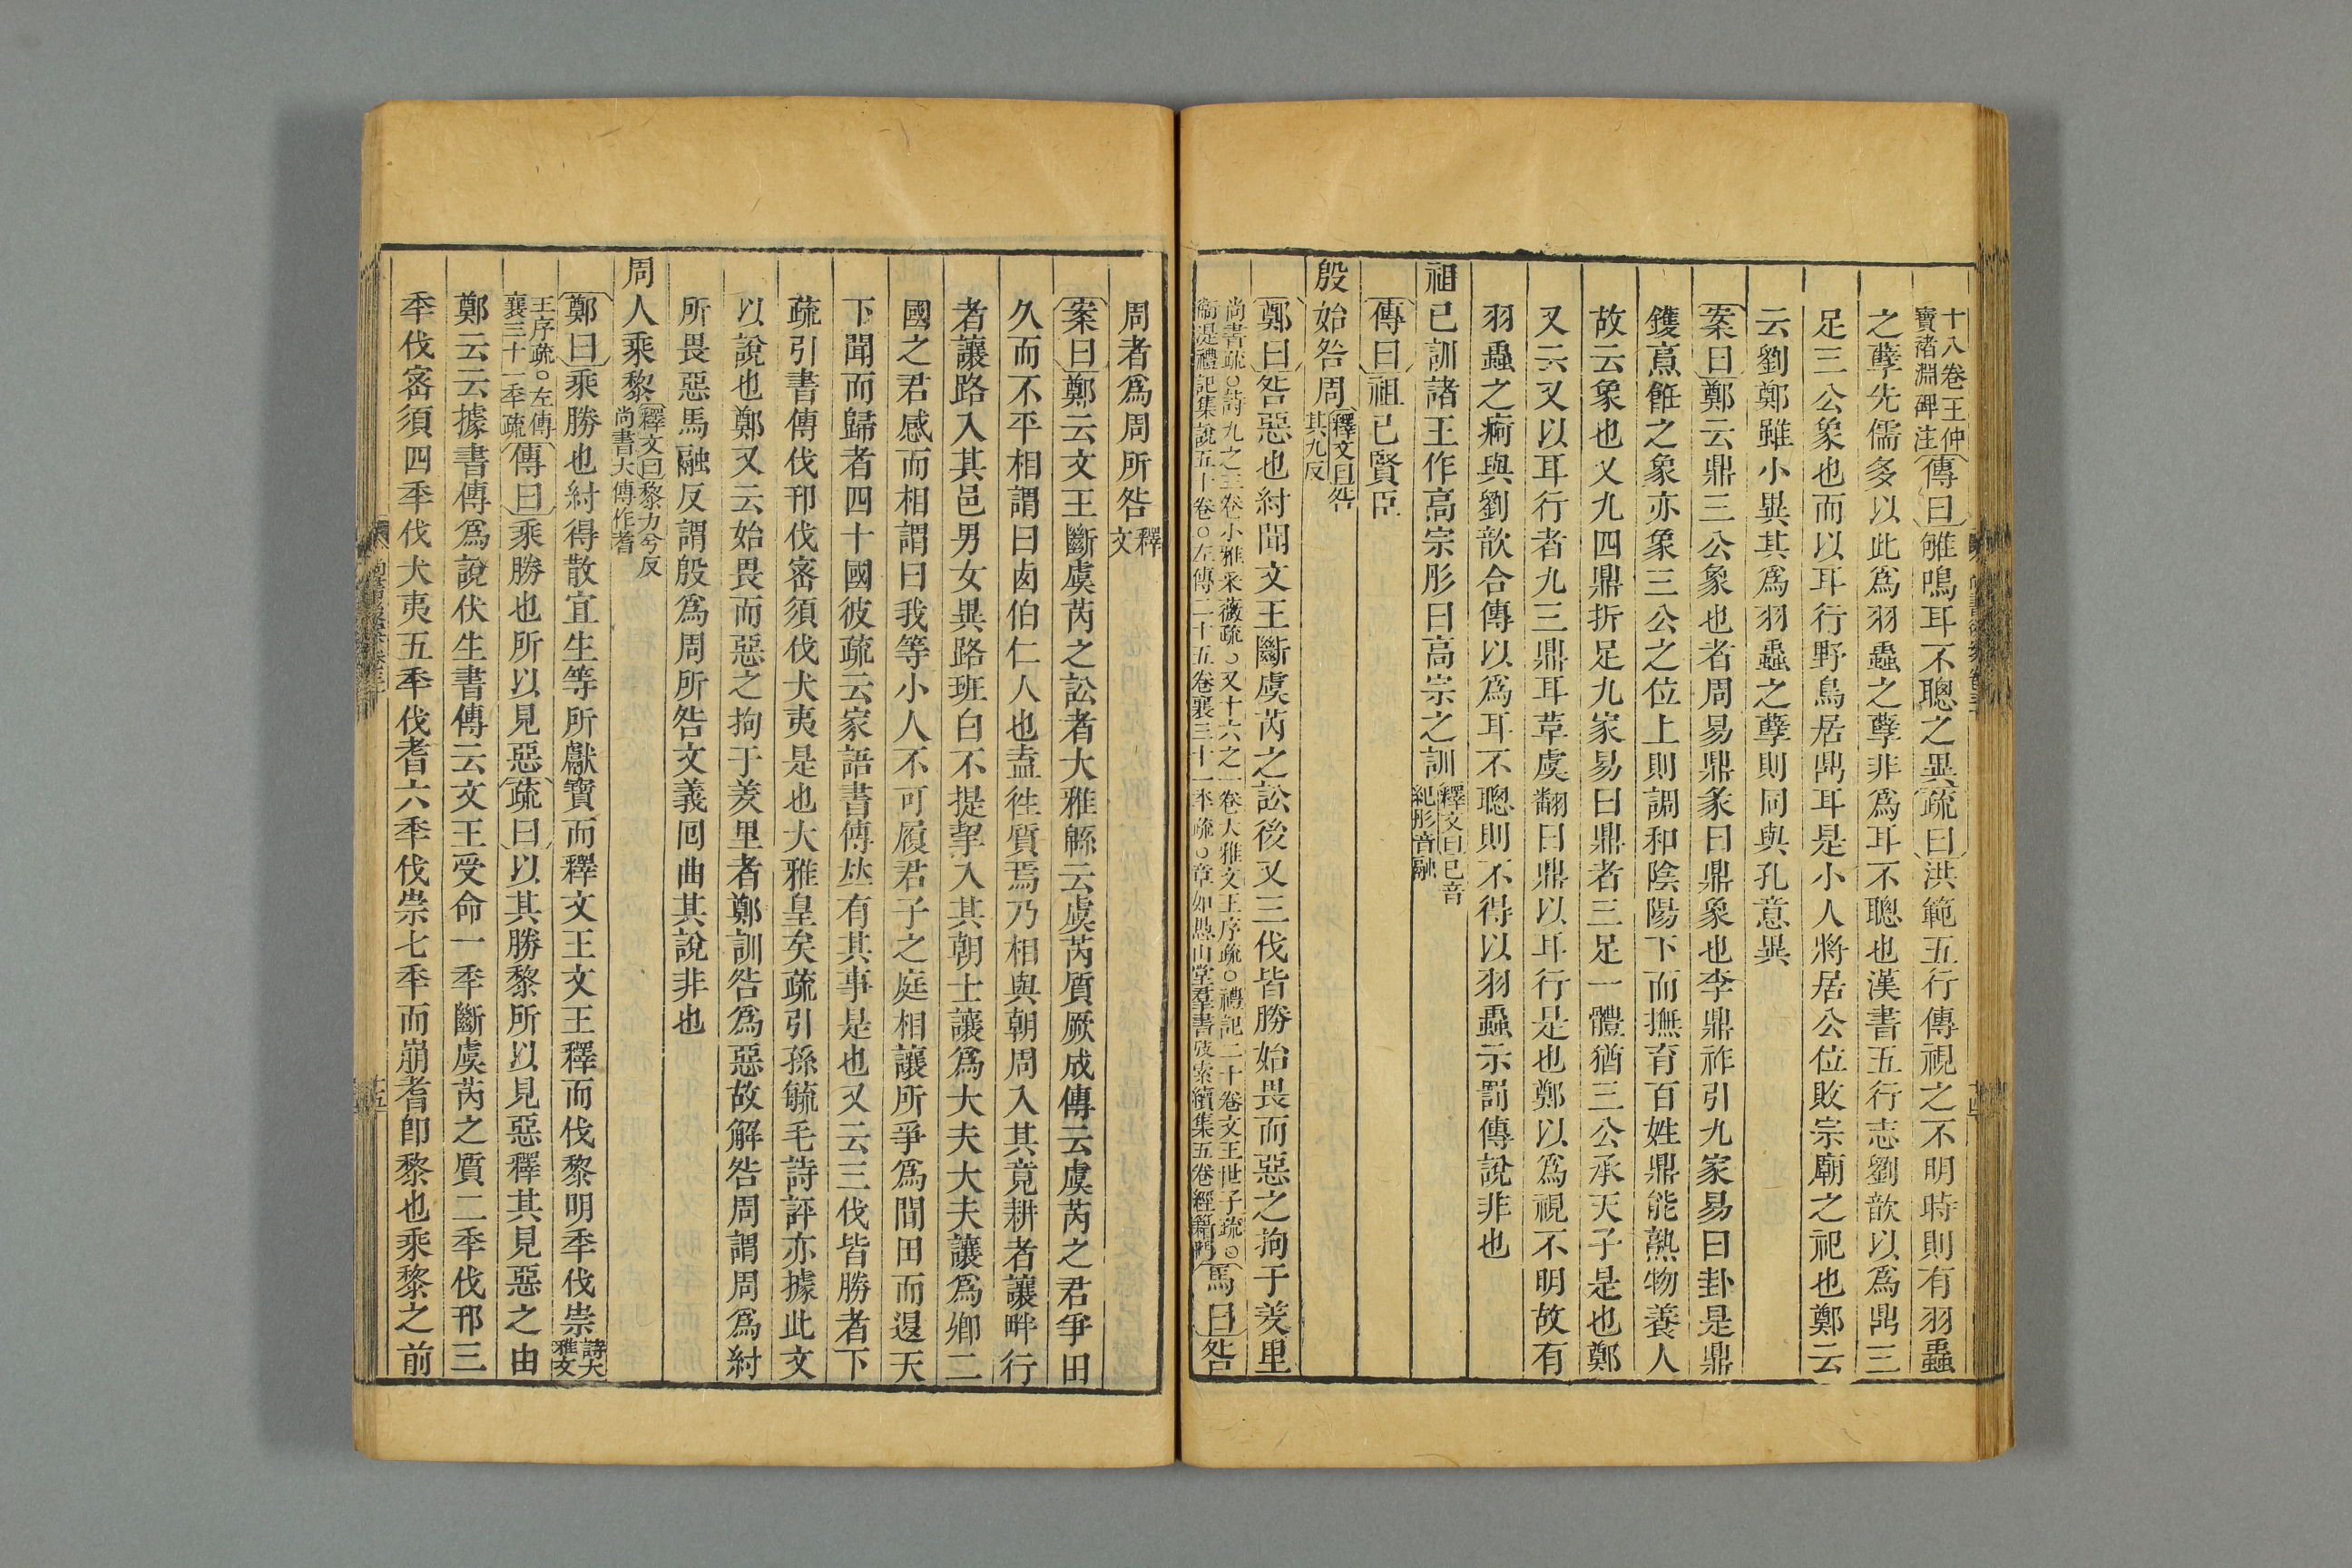 十八卷王仲
寶褚淵碑注傳曰雊鳴耳不聰之異疏曰洪範五行傳視之不明時則有羽蟲
之孽先儒多以此爲羽蟲之孽非爲耳不聰也漢書五行志劉歆以爲鼎三
足三公象也而以耳行野鳥居鼎耳是小人將居公位敗宗廟之祀也鄭云
云劉鄭雖小異其爲羽蟲之孽則同與孔意異
案曰鄭云鼎三公象也者周易鼎彖曰鼎象也李鼎祚引九家易曰卦是鼎
鑊亯飪之象亦象三公之位上則調和陰陽下而撫育百姓鼎能熟物養人
故云象也又九四鼎折足九家易曰鼎者三足一體猶三公承天子是也鄭
又云又以耳行者九三鼎耳革虞翻曰鼎以耳行是也鄭以爲視不明故有
羽蟲之痾與劉歆合傳以爲耳不聰則不得以羽蟲示罰傳說非也
祖己訓諸王作高宗肜日高宗之訓釋文曰己音
紀肜音融
傳曰祖己賢臣
殷始咎周釋文曰咎
其九反
鄭曰咎惡也紂聞文王斷虞芮之訟後又三伐皆勝始畏而惡之拘于羑里
尚書疏○詩九之三卷小雅采薇疏○又十六之一卷大雅文王序疏○禮記二十卷文王世子疏○
衞湜禮記集說五十卷○左傳二十五卷襄三十一秊疏○章如愚山堂羣書攷索續集五卷經籍門馬曰咎
周者爲周所咎釋
文
案曰鄭云文王斷虞芮之訟者大雅緜云虞芮質厥成傳云虞芮之君爭田
久而不平相謂曰㢴伯仁人也盍徃質焉乃相與朝周入其竟耕者讓畔行
者讓路入其邑男女異路班白不提挈入其朝士讓爲大夫大夫讓爲卿二
國之君感而相謂曰我等小人不可履君子之庭相讓所爭爲閒田而退天
下聞而歸者四十國彼疏云家語書傳竝有其事是也又云三伐皆勝者下
疏引書傳伐邘伐密須伐犬夷是也大雅皇矣疏引孫毓毛詩評亦據此文
以說也鄭又云始畏而惡之拘于羑里者鄭訓咎爲惡故解咎周謂周爲紂
所畏惡馬融反謂殷爲周所咎文義囘曲其說非也
周人乘黎釋文曰黎力兮反
尚書大傳作耆
鄭曰乘勝也紂得散宜生等所獻寶而釋文王文王釋而伐黎明秊伐崇詩大
雅文
王序疏○左傳
襄三十一秊疏傳曰乘勝也所以見惡疏曰以其勝黎所以見惡釋其見惡之由
鄭云云據書傳爲說伏生書傳云文王受命一秊斷虞芮之質二秊伐邘三
秊伐密須四秊伐犬夷五秊伐耆六秊伐崇七秊而崩耆卽黎也乘黎之前